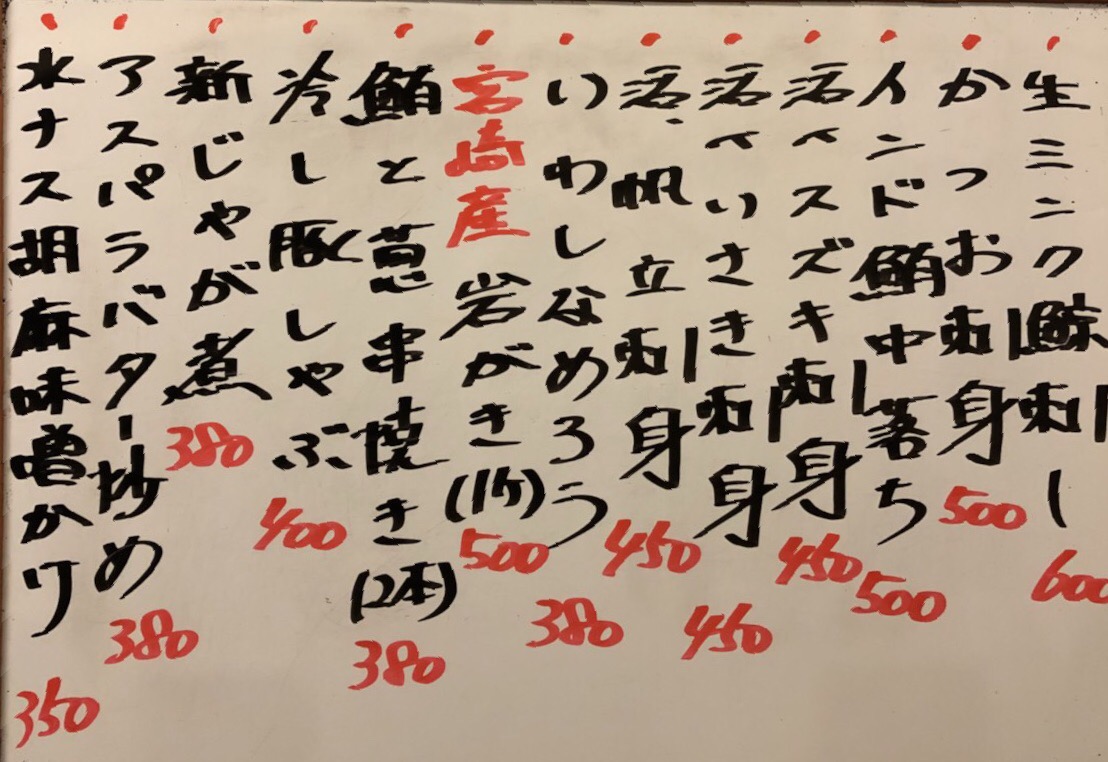 生ミンク鯨刺し 600
かつお刺身 500
インド鮪中落ち 500
活〆スズキ刺身 450
活〆いさき刺身 450
活、帆立刺身 450
いわしなめろう 380
宮崎産岩がき(1ケ) 500
鮪と葱串焼き(2本) 380
冷し豚しゃぶ 400
新じゃが煮 380
アスパラバター炒め 380
水ナス胡麻味噌かけ 350